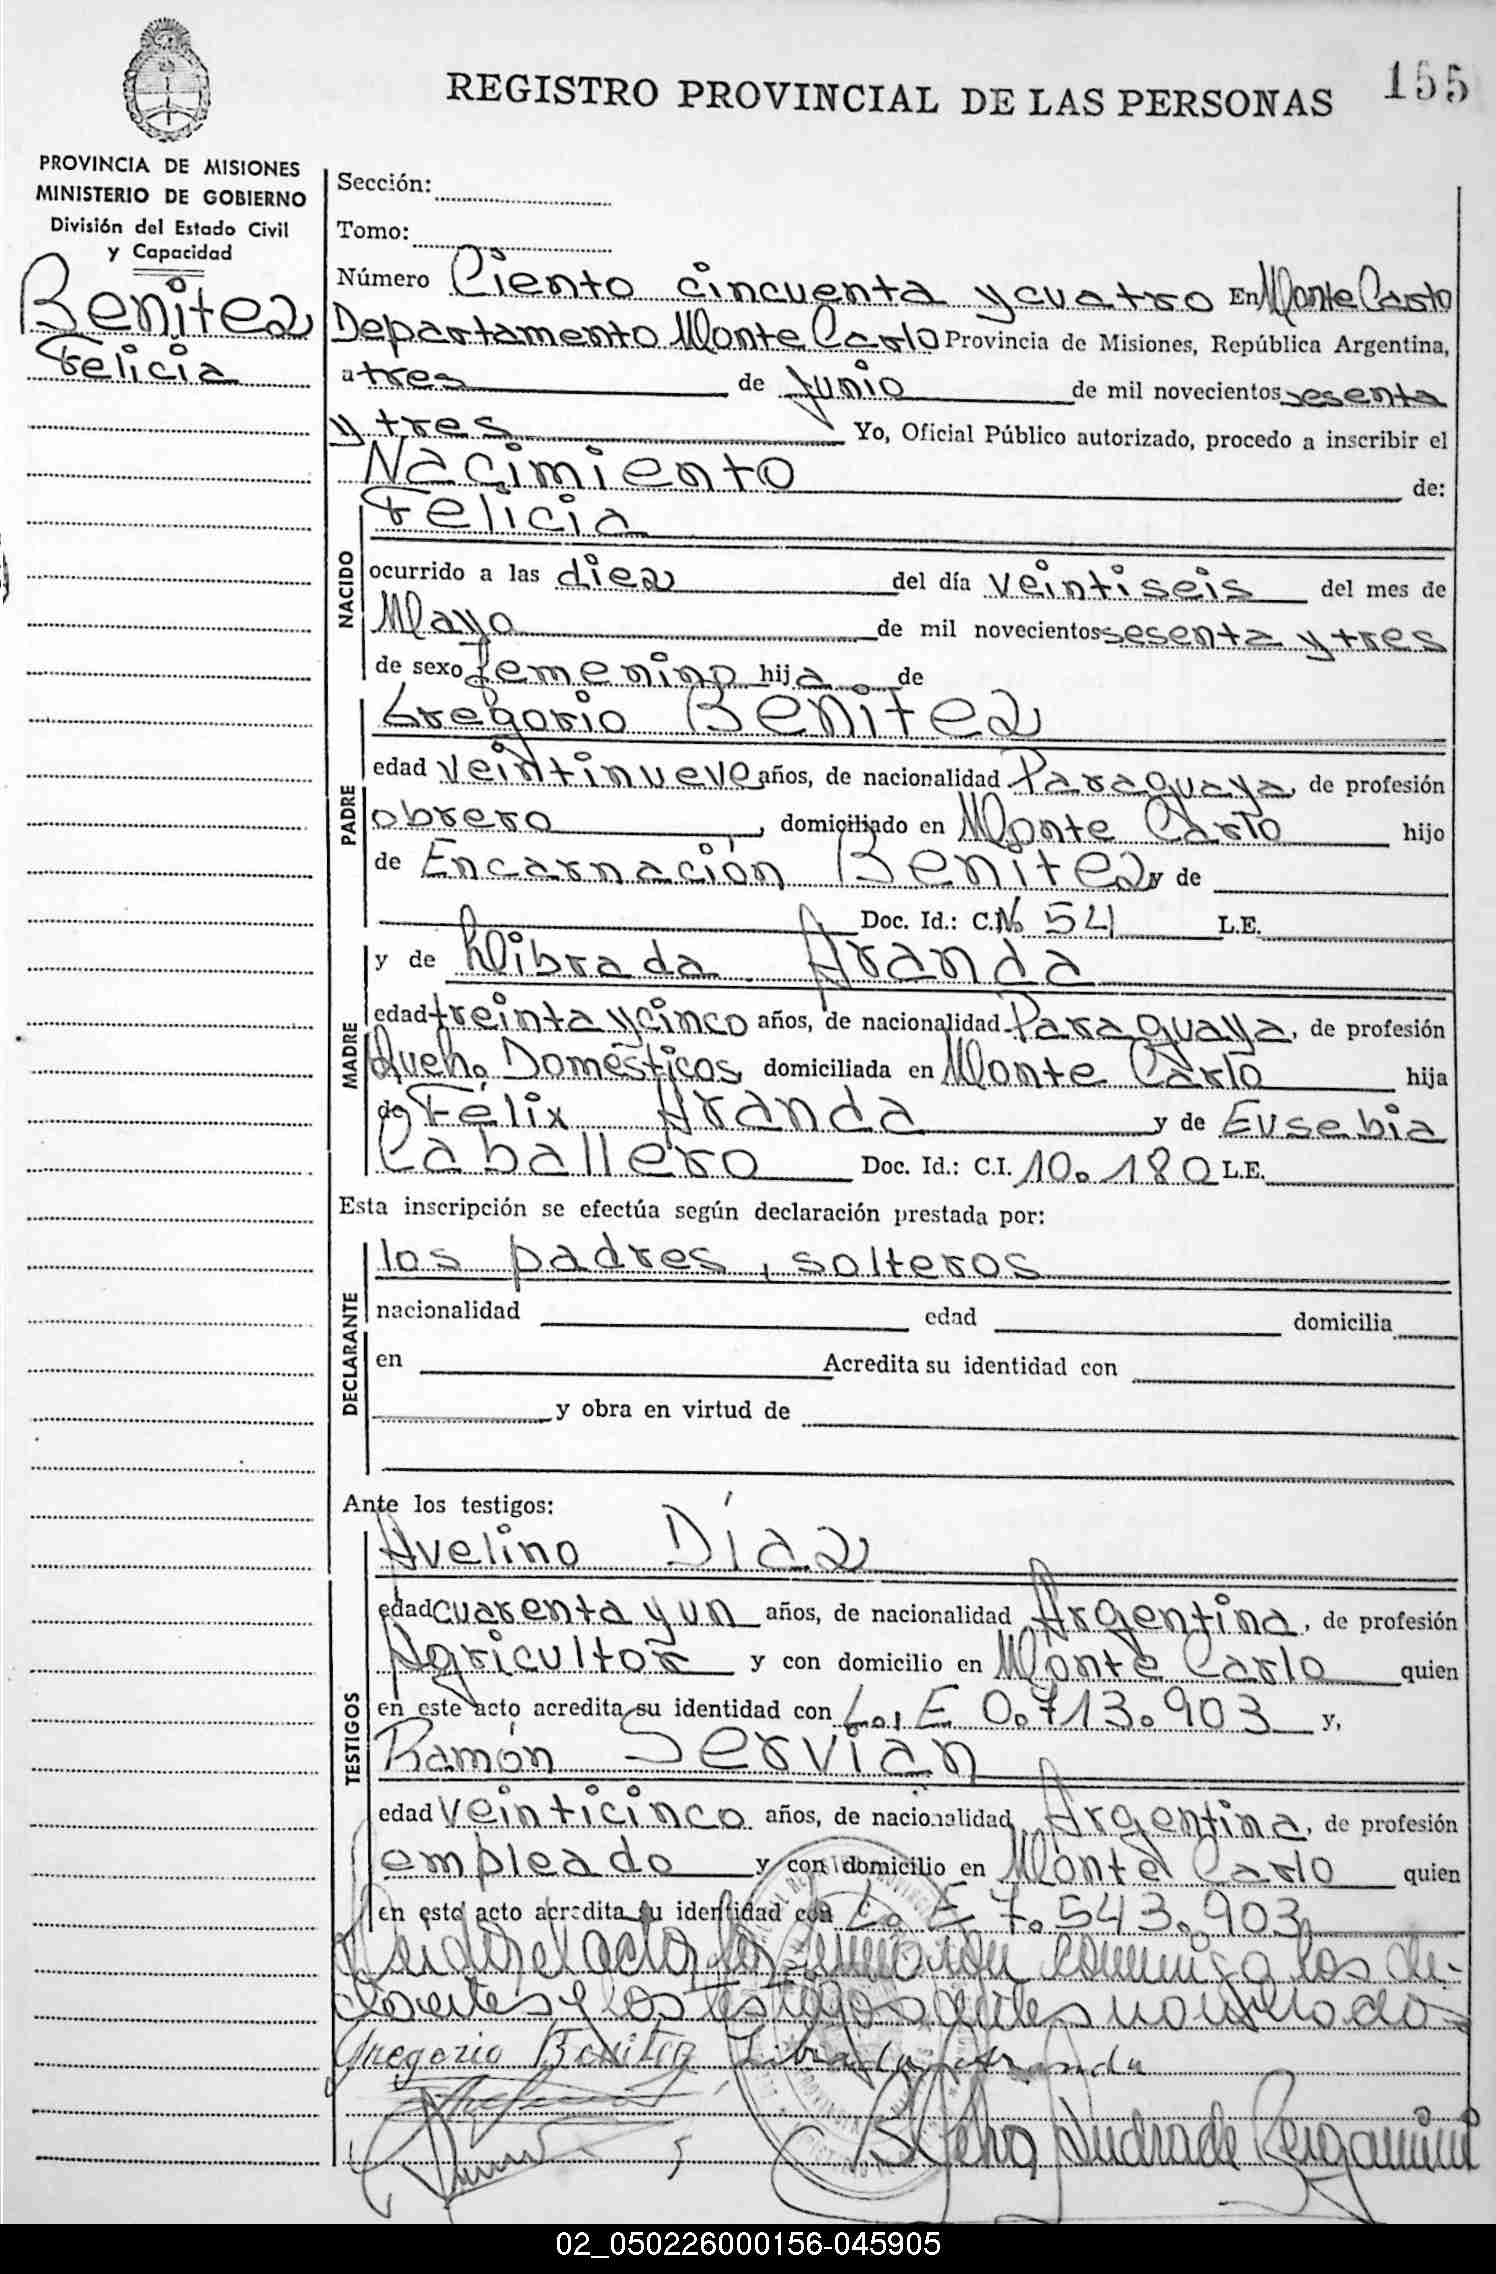 REGISTRO PROVINCIAL DE LAS PERSONAS 155
PROVINCIA DE MISIONES
MINISTERIO DE GOBIERNO
División del Estado Civil
y Capacidad
Benítez
Felicia
Sección:
Tomo:
Número Ciento cincuenta y cuatro En Monte Carlo
Departamento Monte Carlo Provincia de Misiones, República Argentina,
a tres de Junio de mil novecientos sesenta
y tres Yo, Oficial Público autorizado, procedo a inscribir el
Nacimiento de:
NACIDO
Felicia
ocurrido a las diez del día veintiseis del mes de
Mayo de mil novecientos sesenta y tres
de sexo femenino hija de
PADRE
Gregorio Benítez
edad veintinueve años, de nacionalidad Paraguaya, de profesión
obrero, domiciliado en Monte Carlo hijo
de Encarnación Benítez y de
Doc. Id.: C. Nº 54 L.E.
MADRE
y de Librada Aranda
edad treinta y cinco años, de nacionalidad Paraguaya, de profesión
Queh. Domésticos, domiciliada en Monte Carlo hija
de Félix Aranda y de Eusebia
Caballero Doc. Id.: C.I. 10.180 L.E.
Esta inscripción se efectúa según declaración prestada por:
DECLARANTE
los padres, solteros
nacionalidad edad domicilia
en Acredita su identidad con
y obra en virtud de
Ante los testigos:
TESTIGOS
Avelino Díaz
edad cuarenta y un años, de nacionalidad Argentina, de profesión
Agricultor y con domicilio en Monte Carlo quien
en este acto acredita su identidad con L. E 0.713.903 y,
Ramón Servian
edad veinticinco años, de nacionalidad Argentina, de profesión
empleado y con domicilio en Monte Carlo quien
en este acto acredita su identidad con L. E 7.543.903
Leido el acta los conmigo los de-
clarantes y los testigos antes nombrados
Gregorio Benitez Librada Aranda
Andrade Bergamini
02_050226000156-045905